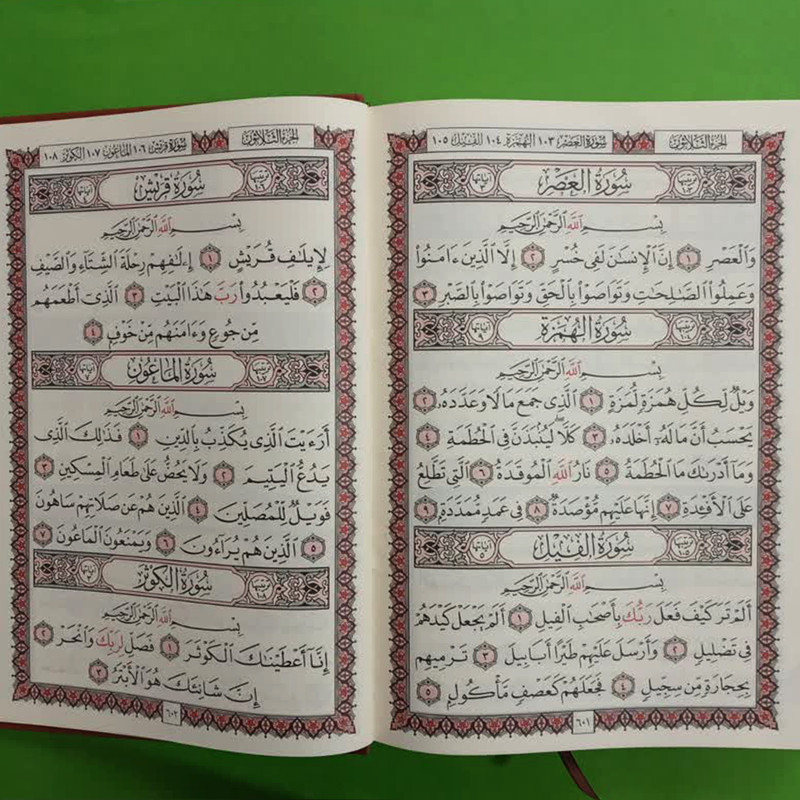 الجزء الثلاثون
سورة العصر ١٠٣ الهمزة ١٠٤ الفيل ١٠٥
سُورَةُ العَصْرِ
بِسْمِ اللَّهِ الرَّحْمَٰنِ الرَّحِيمِ
وَالْعَصْرِ ١ إِنَّ الْإِنسَانَ لَفِي خُسْرٍ ٢ إِلَّا الَّذِينَ ءَامَنُوا
وَعَمِلُوا الصَّالِحَاتِ وَتَوَاصَوْا بِالْحَقِّ وَتَوَاصَوْا بِالصَّبْرِ ٣
سُورَةُ الهُمَزَةِ
بِسْمِ اللَّهِ الرَّحْمَٰنِ الرَّحِيمِ
وَيْلٌ لِّكُلِّ هُمَزَةٍ لُّمَزَةٍ ١ الَّذِي جَمَعَ مَالًا وَعَدَّدَهُ ٢
يَحْسَبُ أَنَّ مَالَهُ أَخْلَدَهُ ٣ كَلَّا لَيُنبَذَنَّ فِي الْحُطَمَةِ ٤
وَمَا أَدْرَاكَ مَا الْحُطَمَةُ ٥ نَارُ اللَّهِ الْمُوقَدَةُ ٦ الَّتِي تَطَّلِعُ
عَلَى الْأَفْئِدَةِ ٧ إِنَّهَا عَلَيْهِم مُّؤْصَدَةٌ ٨ فِي عَمَدٍ مُّمَدَّدَةٍ ٩
سُورَةُ الفِيلِ
بِسْمِ اللَّهِ الرَّحْمَٰنِ الرَّحِيمِ
أَلَمْ تَرَ كَيْفَ فَعَلَ رَبُّكَ بِأَصْحَابِ الْفِيلِ ١ أَلَمْ يَجْعَلْ كَيْدَهُمْ
فِي تَضْلِيلٍ ٢ وَأَرْسَلَ عَلَيْهِمْ طَيْرًا أَبَابِيلَ ٣ تَرْمِيهِم
بِحِجَارَةٍ مِّن سِجِّيلٍ ٤ فَجَعَلَهُمْ كَعَصْفٍ مَّأْكُولٍ ٥
٦٠١
الجزء الثلاثون
سورة قريش ١٠٦ الماعون ١٠٧ الكوثر ١٠٨
سُورَةُ قُرَيْشٍ
بِسْمِ اللَّهِ الرَّحْمَٰنِ الرَّحِيمِ
لِإِيلَافِ قُرَيْشٍ ١ إِۦلَافِهِمْ رِحْلَةَ الشِّتَاءِ وَالصَّيْفِ
٢ فَلْيَعْبُدُوا رَبَّ هَٰذَا الْبَيْتِ ٣ الَّذِي أَطْعَمَهُم
مِّن جُوعٍ وَءَامَنَهُم مِّنْ خَوْفٍ ٤
سُورَةُ المَاعُونِ
بِسْمِ اللَّهِ الرَّحْمَٰنِ الرَّحِيمِ
أَرَءَيْتَ الَّذِي يُكَذِّبُ بِالدِّينِ ١ فَذَٰلِكَ الَّذِي
يَدُعُّ الْيَتِيمَ ٢ وَلَا يَحُضُّ عَلَىٰ طَعَامِ الْمِسْكِينِ ٣
فَوَيْلٌ لِّلْمُصَلِّينَ ٤ الَّذِينَ هُمْ عَن صَلَاتِهِمْ سَاهُونَ
٥ الَّذِينَ هُمْ يُرَاءُونَ ٦ وَيَمْنَعُونَ الْمَاعُونَ ٧
سُورَةُ الكَوْثَرِ
بِسْمِ اللَّهِ الرَّحْمَٰنِ الرَّحِيمِ
إِنَّا أَعْطَيْنَاكَ الْكَوْثَرَ ١ فَصَلِّ لِرَبِّكَ وَانْحَرْ ٢
إِنَّ شَانِئَكَ هُوَ الْأَبْتَرُ ٣
٦٠٢